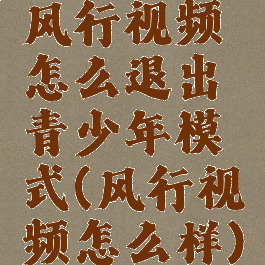 风行视频
怎么退出
青少年模
式(风行视
频怎么样)